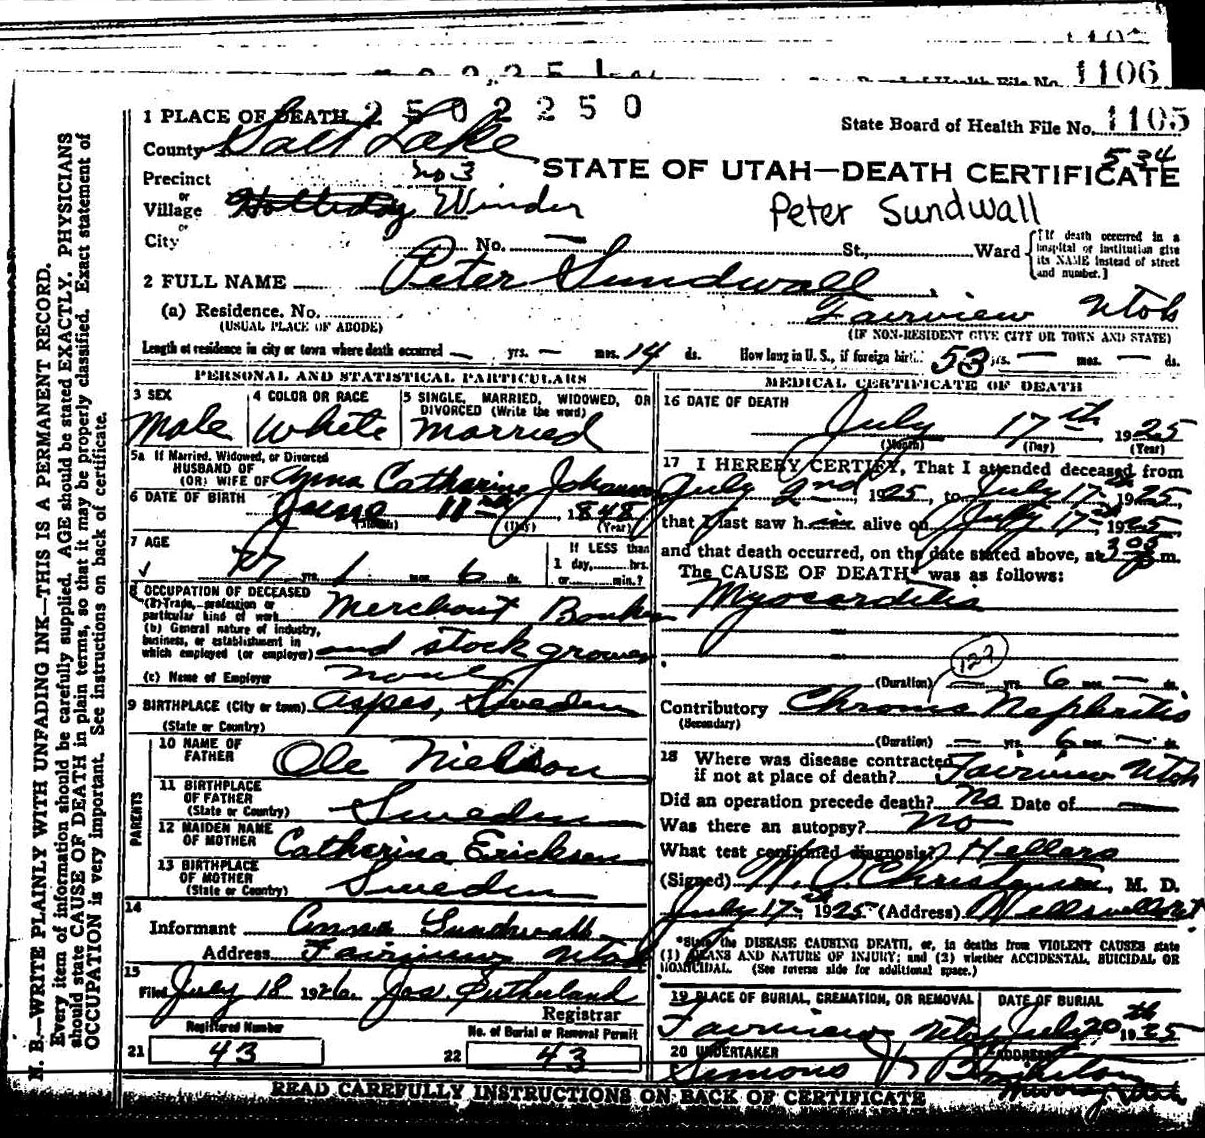 1106
State Board of Health File No. 1105
534
1 PLACE OF DEATH 2502250
County Salt Lake
STATE OF UTAH—DEATH CERTIFICATE
Precinct no 3
or
Village Holliday Winder
Peter Sundwall
or
City No. — St., Ward
{If death occurred in a hospital or institution give its NAME instead of street and number.}
2 FULL NAME Peter Sundwall
(a) Residence. No. Fairview Utah
(USUAL PLACE OF ABODE) (IF NON-RESIDENT GIVE CITY OR TOWN AND STATE)
Length of residence in city or town where death occurred — yrs. — mos. 14 ds. How long in U. S., if foreign birth. 53 yrs. — mos. — ds.
PERSONAL AND STATISTICAL PARTICULARS
3 SEX
Male
4 COLOR OR RACE
White
5 SINGLE, MARRIED, WIDOWED, OR
DIVORCED (Write the word)
Married
5a If Married, Widowed, or Divorced
HUSBAND OF
(OR) WIFE OF Anna Catharine
6 DATE OF BIRTH June 11th 1848
(Month) (Day) (Year)
7 AGE
77 yrs. 1 mos. 6 ds.
If LESS than
1 day, hrs.
or min.?
8 OCCUPATION OF DECEASED
(a) Trade, profession or
particular kind of work Merchant
(b) General nature of industry,
business, or establishment in
which employed (or employer) and stock grower
(c) Name of Employer none
9 BIRTHPLACE (City or town) Sweden
(State or Country)
PARENTS
10 NAME OF
FATHER Ole Nielson
11 BIRTHPLACE
OF FATHER
(State or Country) Sweden
12 MAIDEN NAME
OF MOTHER Catharina Ericksen
13 BIRTHPLACE
OF MOTHER
(State or Country) Sweden
14
Informant Anna Sundwall
Address Fairview Utah
15
Filed July 18 1926 Jos. Sutherland
Registrar
Registered Number No. of Burial or Removal Permit
21 43 22 43
MEDICAL CERTIFICATE OF DEATH
16 DATE OF DEATH
July 17th 1925
(Month) (Day) (Year)
17 I HEREBY CERTIFY, That I attended deceased from
July 2nd 1925, to July 17th 1925,
that I last saw him alive on July 17th 1925
and that death occurred, on the date stated above, at m.
The CAUSE OF DEATH* was as follows:
Myocarditis
(Duration) — yrs. 6 mos. — ds.
Contributory Chronic Nephritis
(Secondary)
(Duration) — yrs. 6 mos. — ds.
18 Where was disease contracted
if not at place of death? Fairview Utah
Did an operation precede death? No Date of —
Was there an autopsy? No
What test confirmed diagnosis? Hellers
(Signed) Christensen, M. D.
July 17th, 1925 (Address)
*State the DISEASE CAUSING DEATH, or, in deaths from VIOLENT CAUSES state
(1) MEANS AND NATURE OF INJURY; and (2) whether ACCIDENTAL, SUICIDAL OR
HOMICIDAL. (See reverse side for additional space.)
19 PLACE OF BURIAL, CREMATION, OR REMOVAL DATE OF BURIAL
Fairview Utah July 20th 1925
20 UNDERTAKER ADDRESS
Murray Utah
READ CAREFULLY INSTRUCTIONS ON BACK OF CERTIFICATE
N. B.—WRITE PLAINLY WITH UNFADING INK—THIS IS A PERMANENT RECORD.
Every item of information should be carefully supplied. AGE should be stated EXACTLY. PHYSICIANS
should state CAUSE OF DEATH in plain terms, so that it may be properly classified. Exact statement of
OCCUPATION is very important. See instructions on back of certificate.